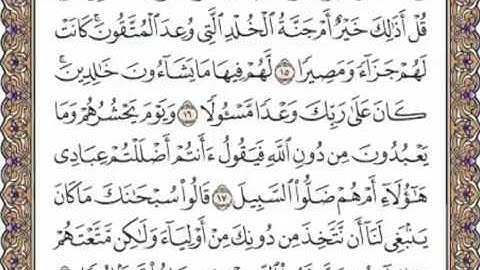 قُلْ أَذَٰلِكَ خَيْرٌ أَمْ جَنَّةُ ٱلْخُلْدِ ٱلَّتِى وُعِدَ ٱلْمُتَّقُونَ ۚ كَانَتْ
لَهُمْ جَزَآءً وَمَصِيرًا ١٥ لَّهُمْ فِيهَا مَا يَشَآءُونَ خَٰلِدِينَ ۚ
كَانَ عَلَىٰ رَبِّكَ وَعْدًا مَّسْـُٔولًا ١٦ وَيَوْمَ يَحْشُرُهُمْ وَمَا
يَعْبُدُونَ مِن دُونِ ٱللَّهِ فَيَقُولُ ءَأَنتُمْ أَضْلَلْتُمْ عِبَادِى
هَٰٓؤُلَآءِ أَمْ هُمْ ضَلُّوا۟ ٱلسَّبِيلَ ١٧ قَالُوا۟ سُبْحَٰنَكَ مَا كَانَ
يَنۢبَغِى لَنَآ أَن نَّتَّخِذَ مِن دُونِكَ مِنْ أَوْلِيَآءَ وَلَٰكِن مَّتَّعْتَهُمْ